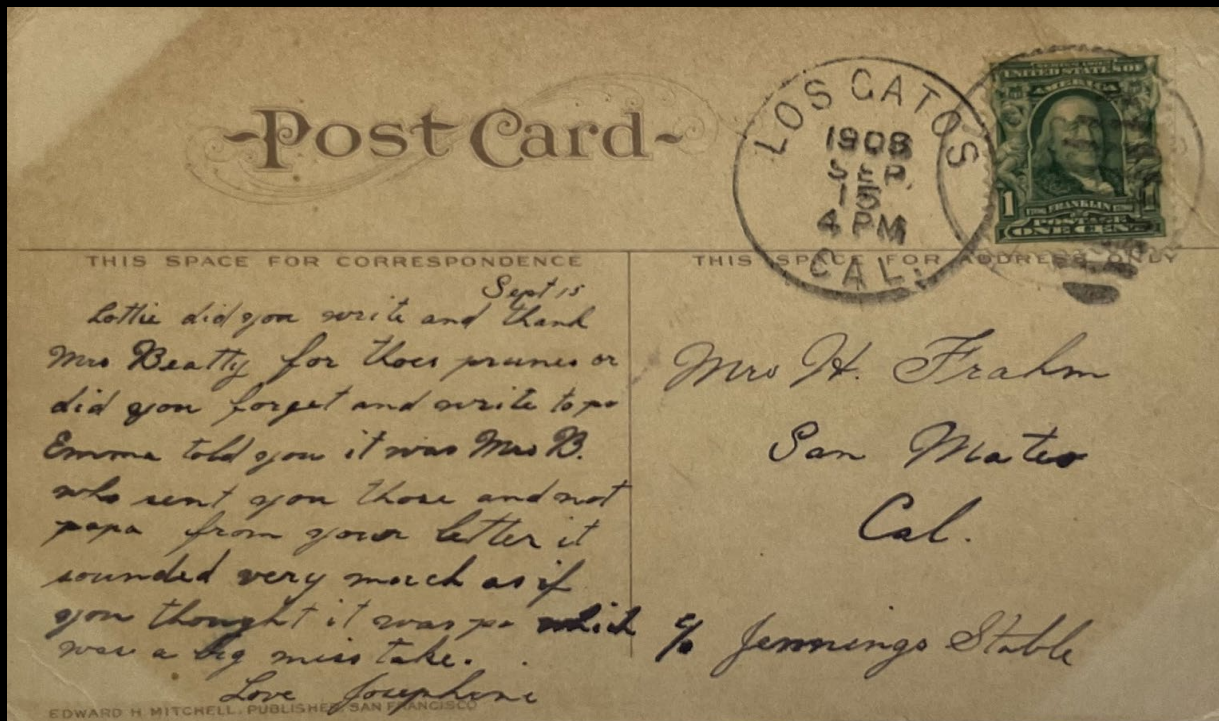 Post Card
LOS GATOS
1908
SEP
15
4 PM
CAL.
UNITED STATES OF
AMERICA
1
FRANKLIN
POSTAGE
ONE CENT
THIS SPACE FOR CORRESPONDENCE
Sept 15
Lottie did you write and thank
Mrs Beatty for thoes prunes or
did you forget and write to pa
Emma told you it was Mrs B.
who sent you those and not
papa from your letter it
sounded very much as if
you thought it was pa which
was a big miss take.
Love Josephine
THIS SPACE FOR ADDRESS ONLY
Mrs H. Frahm
San Mateo
Cal.
c/o Jennings Stable
EDWARD H. MITCHELL, PUBLISHER, SAN FRANCISCO